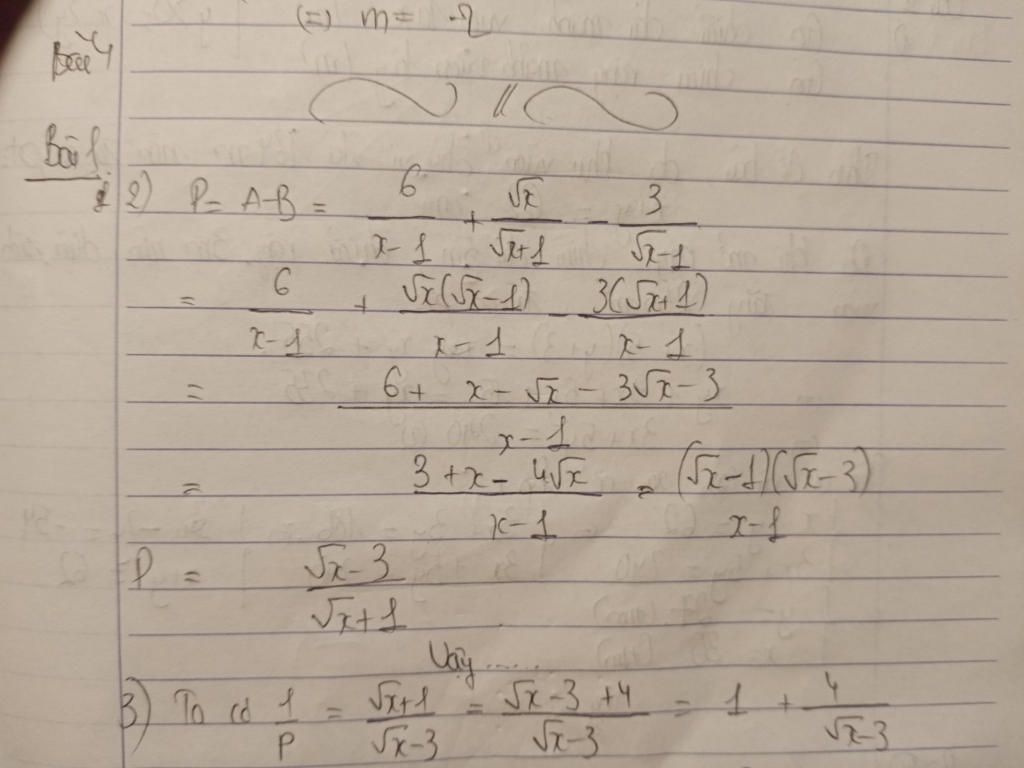 (=) m = -2
Bài 4
Bài 1
2) P = A-B = 6/(x-1) + √x/(√x+1) - 3/(√x-1)
= 6/(x-1) + √x(√x-1)/(x-1) - 3(√x+1)/(x-1)
= (6 + x - √x - 3√x - 3)/(x-1)
= (3 + x - 4√x)/(x-1) = (√x-1)(√x-3)/(x-1)
P = (√x-3)/(√x+1)
Vậy ......
3) Ta có 1/P = (√x+1)/(√x-3) = (√x-3+4)/(√x-3) = 1 + 4/(√x-3)